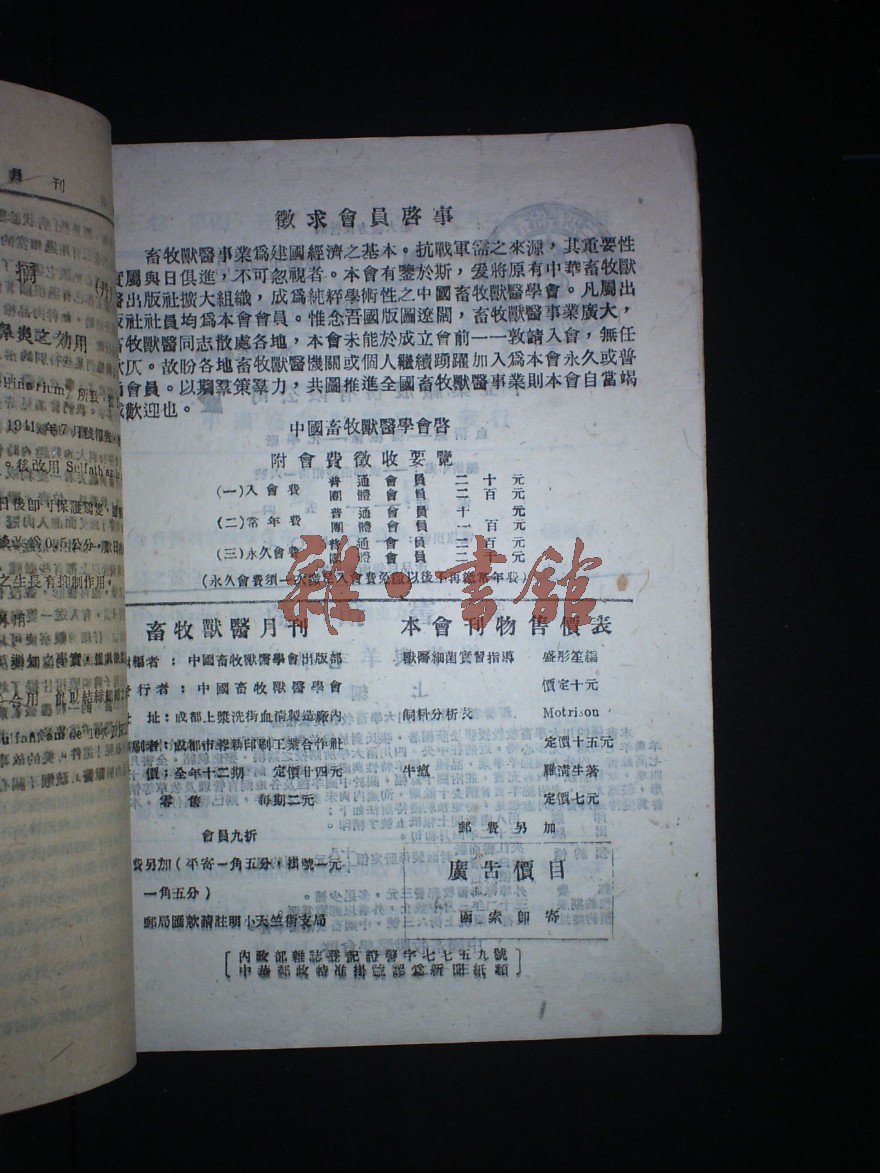 月刊
摘
鼻炎之効用
1941年7月
。後改用 Sulfath
日後即可保護
之生長有抑制作用,
徵求會員啓事
畜牧獸醫事業爲建國經濟之基本。抗戰軍需之來源,其重要性
實屬與日俱進,不可忽視者。本會有鑒於斯,爰將原有中華畜牧獸
醫出版社擴大組織,成爲純粹學術性之中國畜牧獸醫學會。凡屬出
版社社員均爲本會會員。惟念吾國版圖遼闊,畜牧獸醫事業廣大,
畜牧獸醫同志散處各地,本會未能於成立會前一一敦請入會,無任
歉仄。故盼各地畜牧獸醫機關或個人繼續踴躍加入爲本會永久或普
通會員。以期羣策羣力,共圖推進全國畜牧獸醫事業則本會自當竭
誠歡迎也。
中國畜牧獸醫學會啓
附會費徵收要覽
(一)入會費 普通會員 二十元
團體會員 二百元
(二)常年費 普通會員 十元
團體會員 一百元
(三)永久會費 普通會員 二百元
團體會員
(永久會費須一次繳足入會費免繳以後不再繳常年費)
雜·書館
畜牧獸醫月刊
編者:中國畜牧獸醫學會出版部
行者:中國畜牧獸醫學會
址:成都上漿洗街血清製造廠內
刷者:成都市蓉新印刷工業合作社
價:全年十二期 定價廿四元
零售 每期二元
會員九折
費另加(平寄一角五分,掛號一元
一角五分)
郵局匯款請註明小天竺街支局
本會刊物售價表
獸醫細菌實習指導 盛彤笙編
價定十元
飼料分析芨 Motrison
定價十五元
牛瘟 羅清生著
定價七元
郵費另加
廣告價目
函索即寄
內政部雜誌登記證警字七七五九號
中華郵政特准掛號認爲新聞紙類